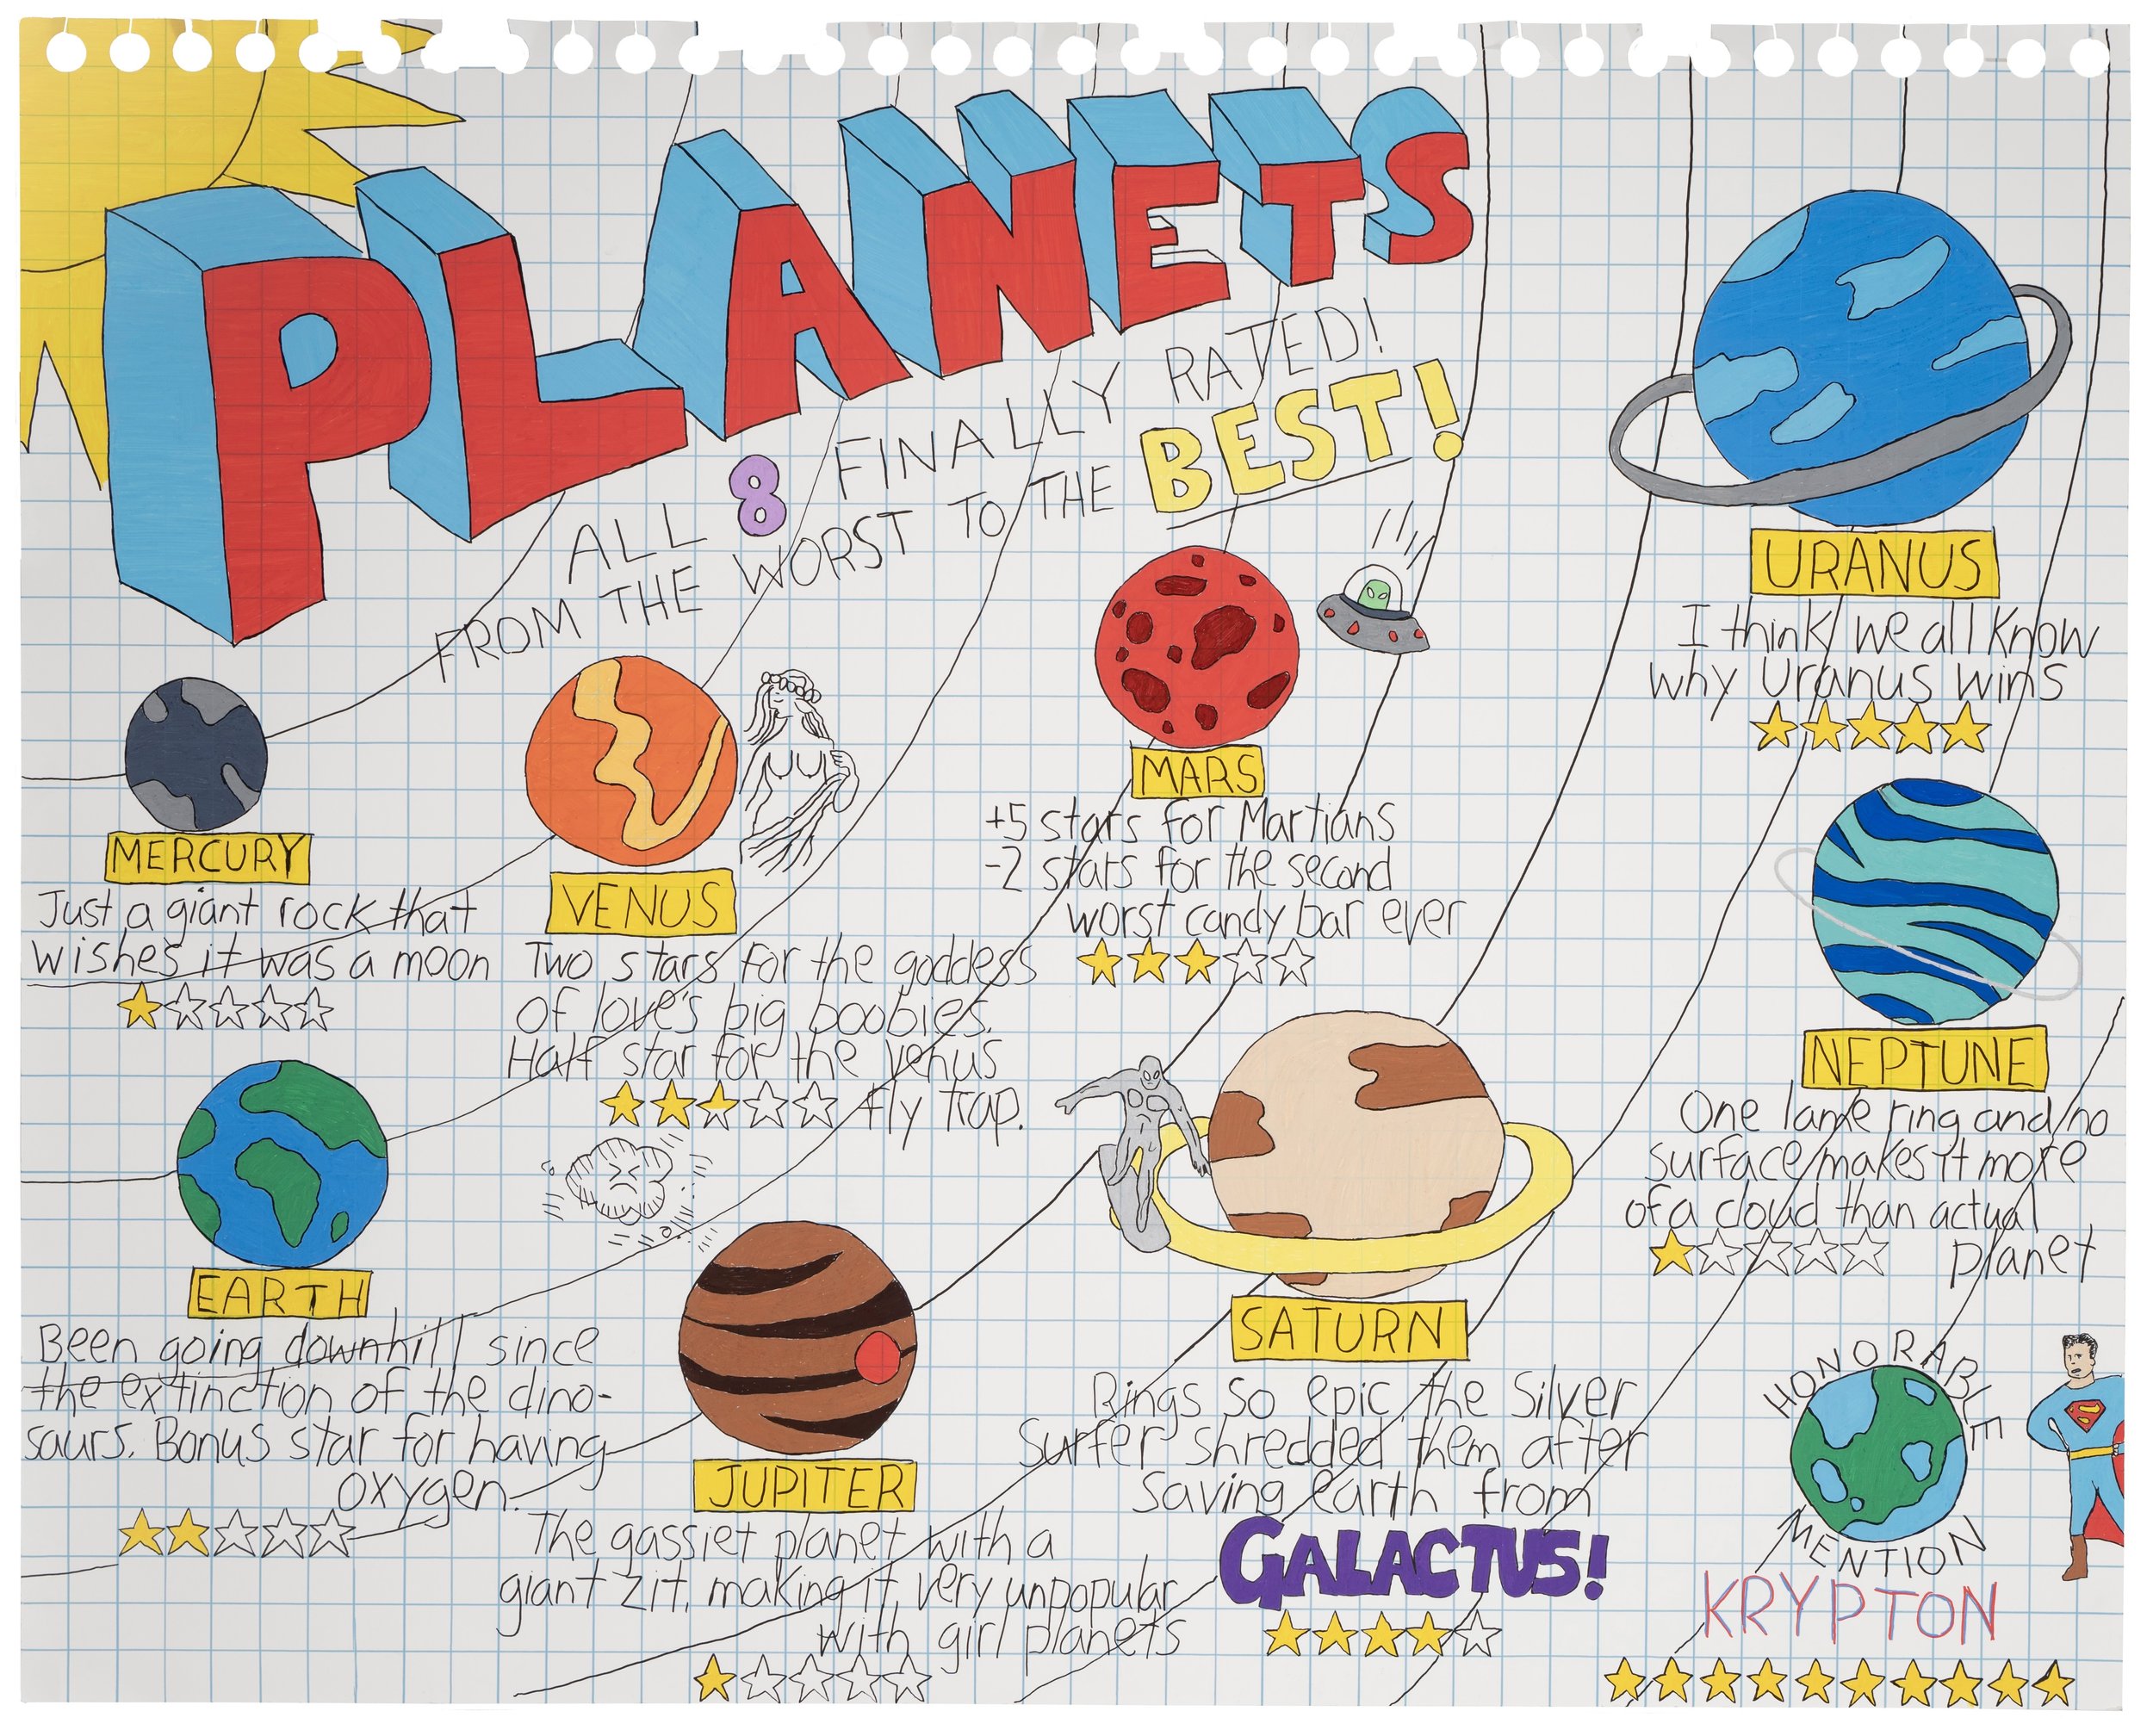 PLANETS
ALL 8 FINALLY RATED!
FROM THE WORST TO THE BEST!
MERCURY
Just a giant rock that
wishes it was a moon
VENUS
Two stars for the goddess
of love's big boobies.
Half star for the venus
fly trap.
MARS
+5 stars for Martians
-2 stars for the second
worst candy bar ever
URANUS
I think we all know
why Uranus wins
EARTH
Been going downhill since
the extinction of the dino-
saurs. Bonus star for having
oxygen.
JUPITER
The gassiet planet with a
giant zit, making it very unpopular
with girl planets
SATURN
Rings so epic the Silver
Surfer shredded them after
saving earth from
GALACTUS!
NEPTUNE
One lame ring and no
surface makes it more
of a cloud than actual
planet
HONORABLE
MENTION
KRYPTON
S